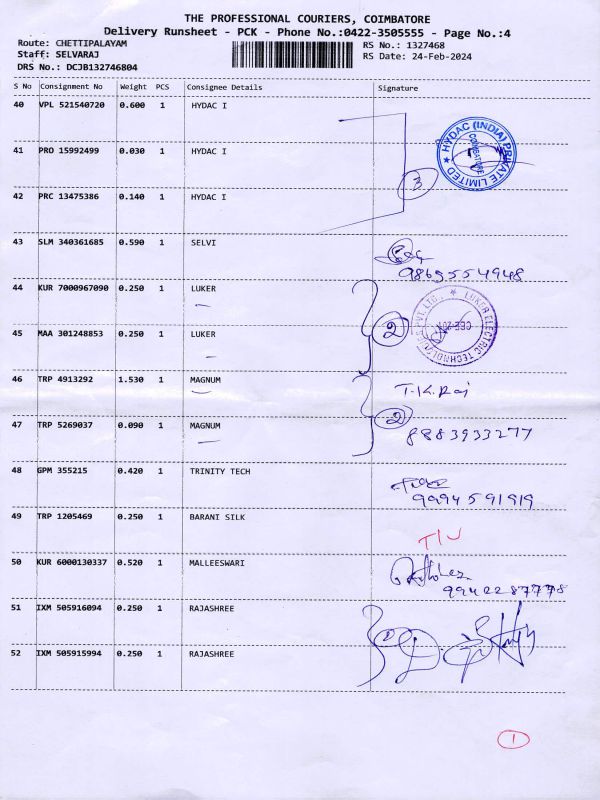 THE PROFESSIONAL COURIERS, COIMBATORE
Delivery Runsheet - PCK - Phone No.:0422-3505555 - Page No.:4
Route: CHETTIPALAYAM
RS No.: 1327468
Staff: SELVARAJ
RS Date: 24-Feb-2024
DRS No.: DCJB132746804
S No Consignment No Weight PCS Consignee Details Signature
40 VPL 521540720 0.600 1 HYDAC I
HYDAC (INDIA) PRIVATE LIMITED ★
COIMBATORE
41 PRO 15992499 0.030 1 HYDAC I
3
42 PRC 13475386 0.140 1 HYDAC I
43 SLM 340361685 0.590 1 SELVI
9865554948
44 KUR 7000967090 0.250 1 LUKER
★ LUKER ELECTRIC TECHNOLOGIES PVT. LTD.
2
45 MAA 301248853 0.250 1 LUKER
46 TRP 4913292 1.530 1 MAGNUM
T.K.Raj
2
47 TRP 5269037 0.090 1 MAGNUM
8883933277
48 GPM 355215 0.420 1 TRINITY TECH
9994591919
49 TRP 1205469 0.250 1 BARANI SILK
50 KUR 6000130337 0.520 1 MALLEESWARI
9942287778
51 IXM 505916094 0.250 1 RAJASHREE
2
52 IXM 505915994 0.250 1 RAJASHREE
1